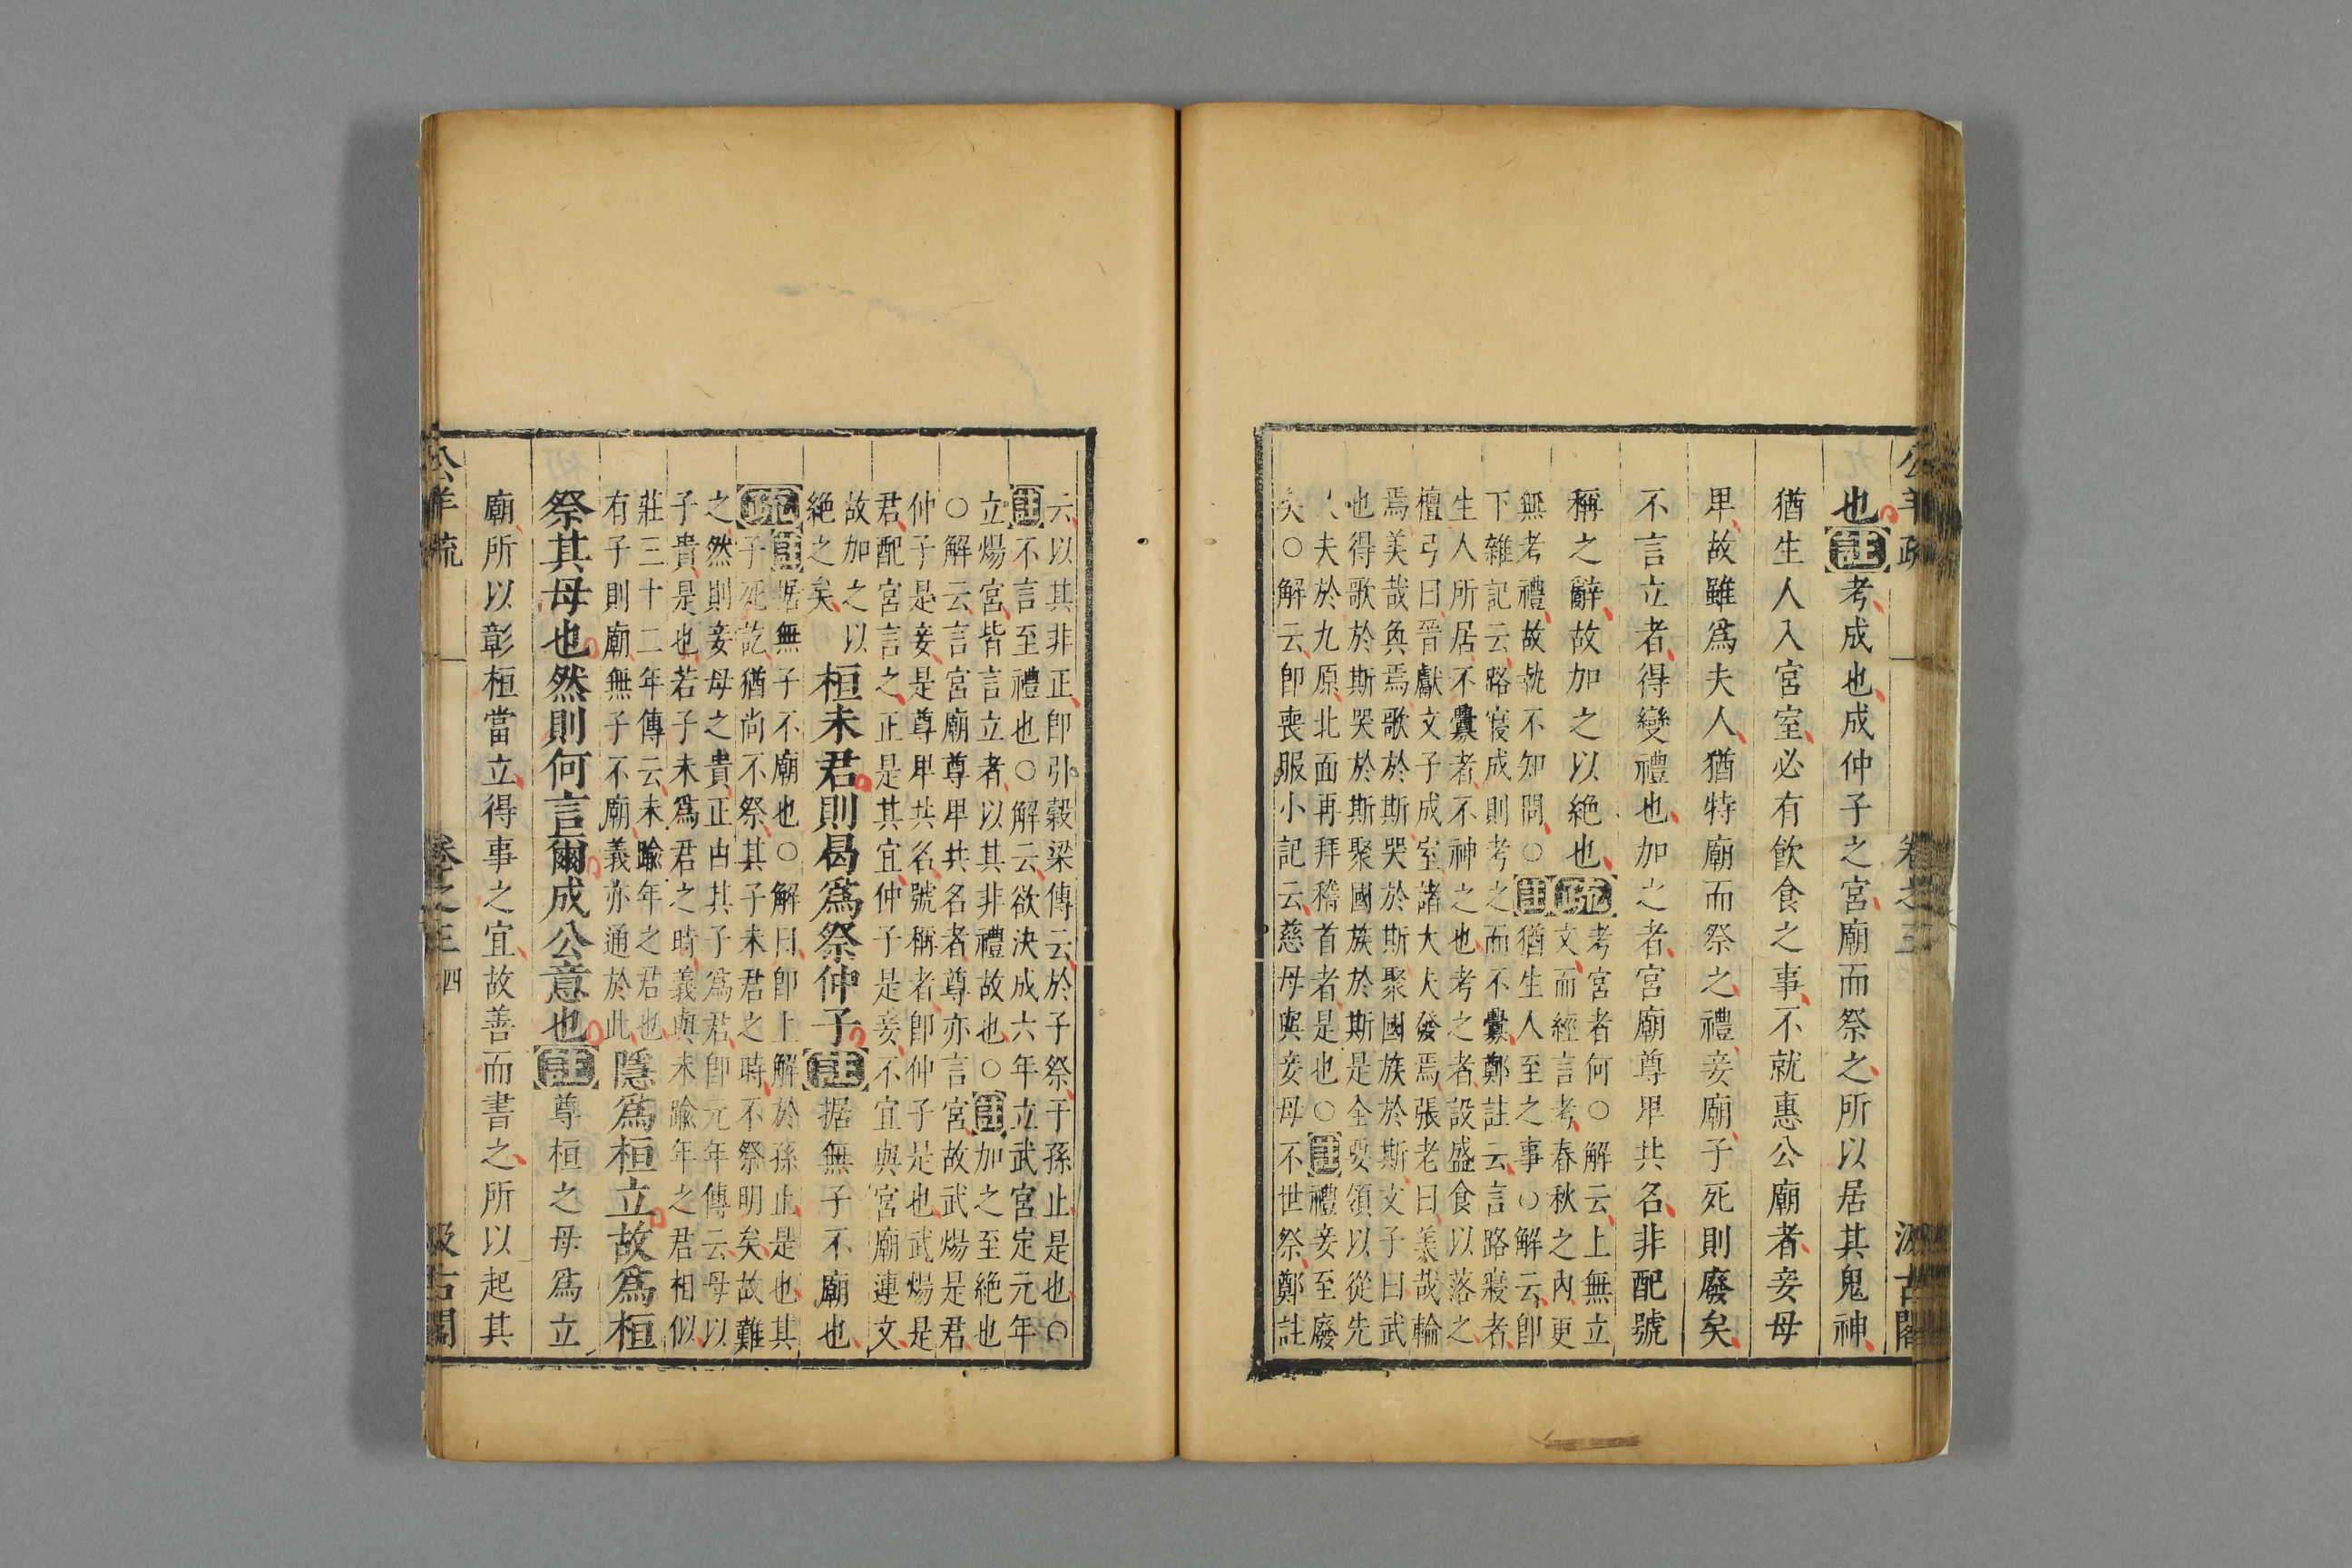 公羊疏　卷之三　汲古閣
也註考成也成仲子之宮廟而祭之所以居其鬼神
猶生人入宮室必有飲食之事不就惠公廟者妾母
卑故雖爲夫人猶特廟而祭之禮妾廟子死則廢矣
不言立者得變禮也加之者宮廟尊卑共名非配號
稱之辭故加之以絶也疏考宮者何○解云上無立
文而經言考春秋之內更
無考禮故執不知問○註猶生人至之事○解云卽
下雜記云路寢成則考之而不釁鄭註云言路寢者
生人所居不釁者不神之也考之者設盛食以落之
檀弓曰晉獻文子成室諸大夫發焉張老曰美哉輪
焉美哉奐焉歌於斯哭於斯聚國族於斯文子曰武
也得歌於斯哭於斯聚國族於斯是全要領以從先
夫於九原北面再拜稽首者是也○註禮妾至廢
矣○解云卽喪服小記云慈母與妾母不世祭鄭註
云以其非正卽引穀梁傳云於子祭于孫止是也○
註不言至禮也○解云欲決成六年立武宮定元年
立煬宮皆言立者以其非禮故也○註加之至絶也
○解云言宮廟尊卑共名者尊亦言宮故武煬是君
仲子是妾是尊卑共名號稱者卽仲子是也武煬是
君配宮言之正是其宜仲子是妾不宜與宮廟連文
故加之以
絶之矣
桓未君則曷爲祭仲子註据無子不廟也
疏註据無子不廟也○解曰卽上解於孫止是也其
子死訖猶尚不祭其子未君之時不祭明矣故難
之然則妾母之貴正由其子爲君卽元年傳云母以
子貴是也若子未爲君之時義與未踰年之君相似
莊三十二年傳云未踰年之君也
有子則廟無子不廟義亦通於此
隱爲桓立故爲桓
祭其母也然則何言爾成公意也註尊桓之母爲立
廟所以彰桓當立得事之宜故善而書之所以起其
公羊疏　卷之三　四　汲古閣